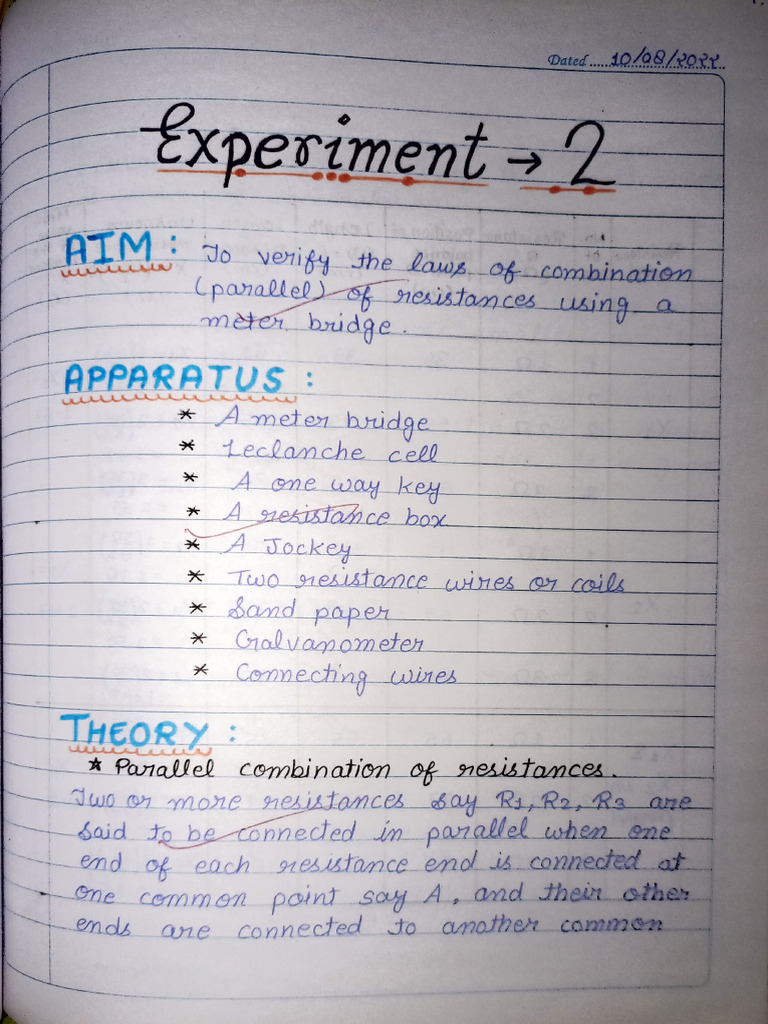 Dated ..... 10/08/2022
Experiment → 2
AIM : To verify the laws of combination
(parallel) of resistances using a
meter bridge.
APPARATUS :
* A meter bridge
* Leclanche cell
* A one way key
* A resistance box
* A Jockey
* Two resistance wires or coils
* Sand paper
* Galvanometer
* Connecting wires
THEORY :
* Parallel combination of resistances.
Two or more resistances say R1, R2, R3 are
said to be connected in parallel when one
end of each resistance end is connected at
one common point say A, and their other
ends are connected to another common